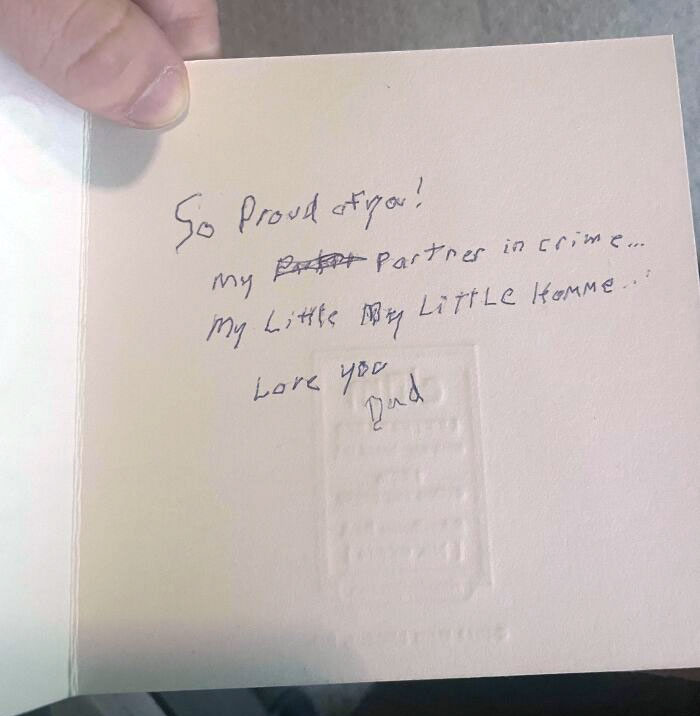 So Proud of you!
My Partner in crime...
My Little My LiTTLe Homme...
Love you
Dad